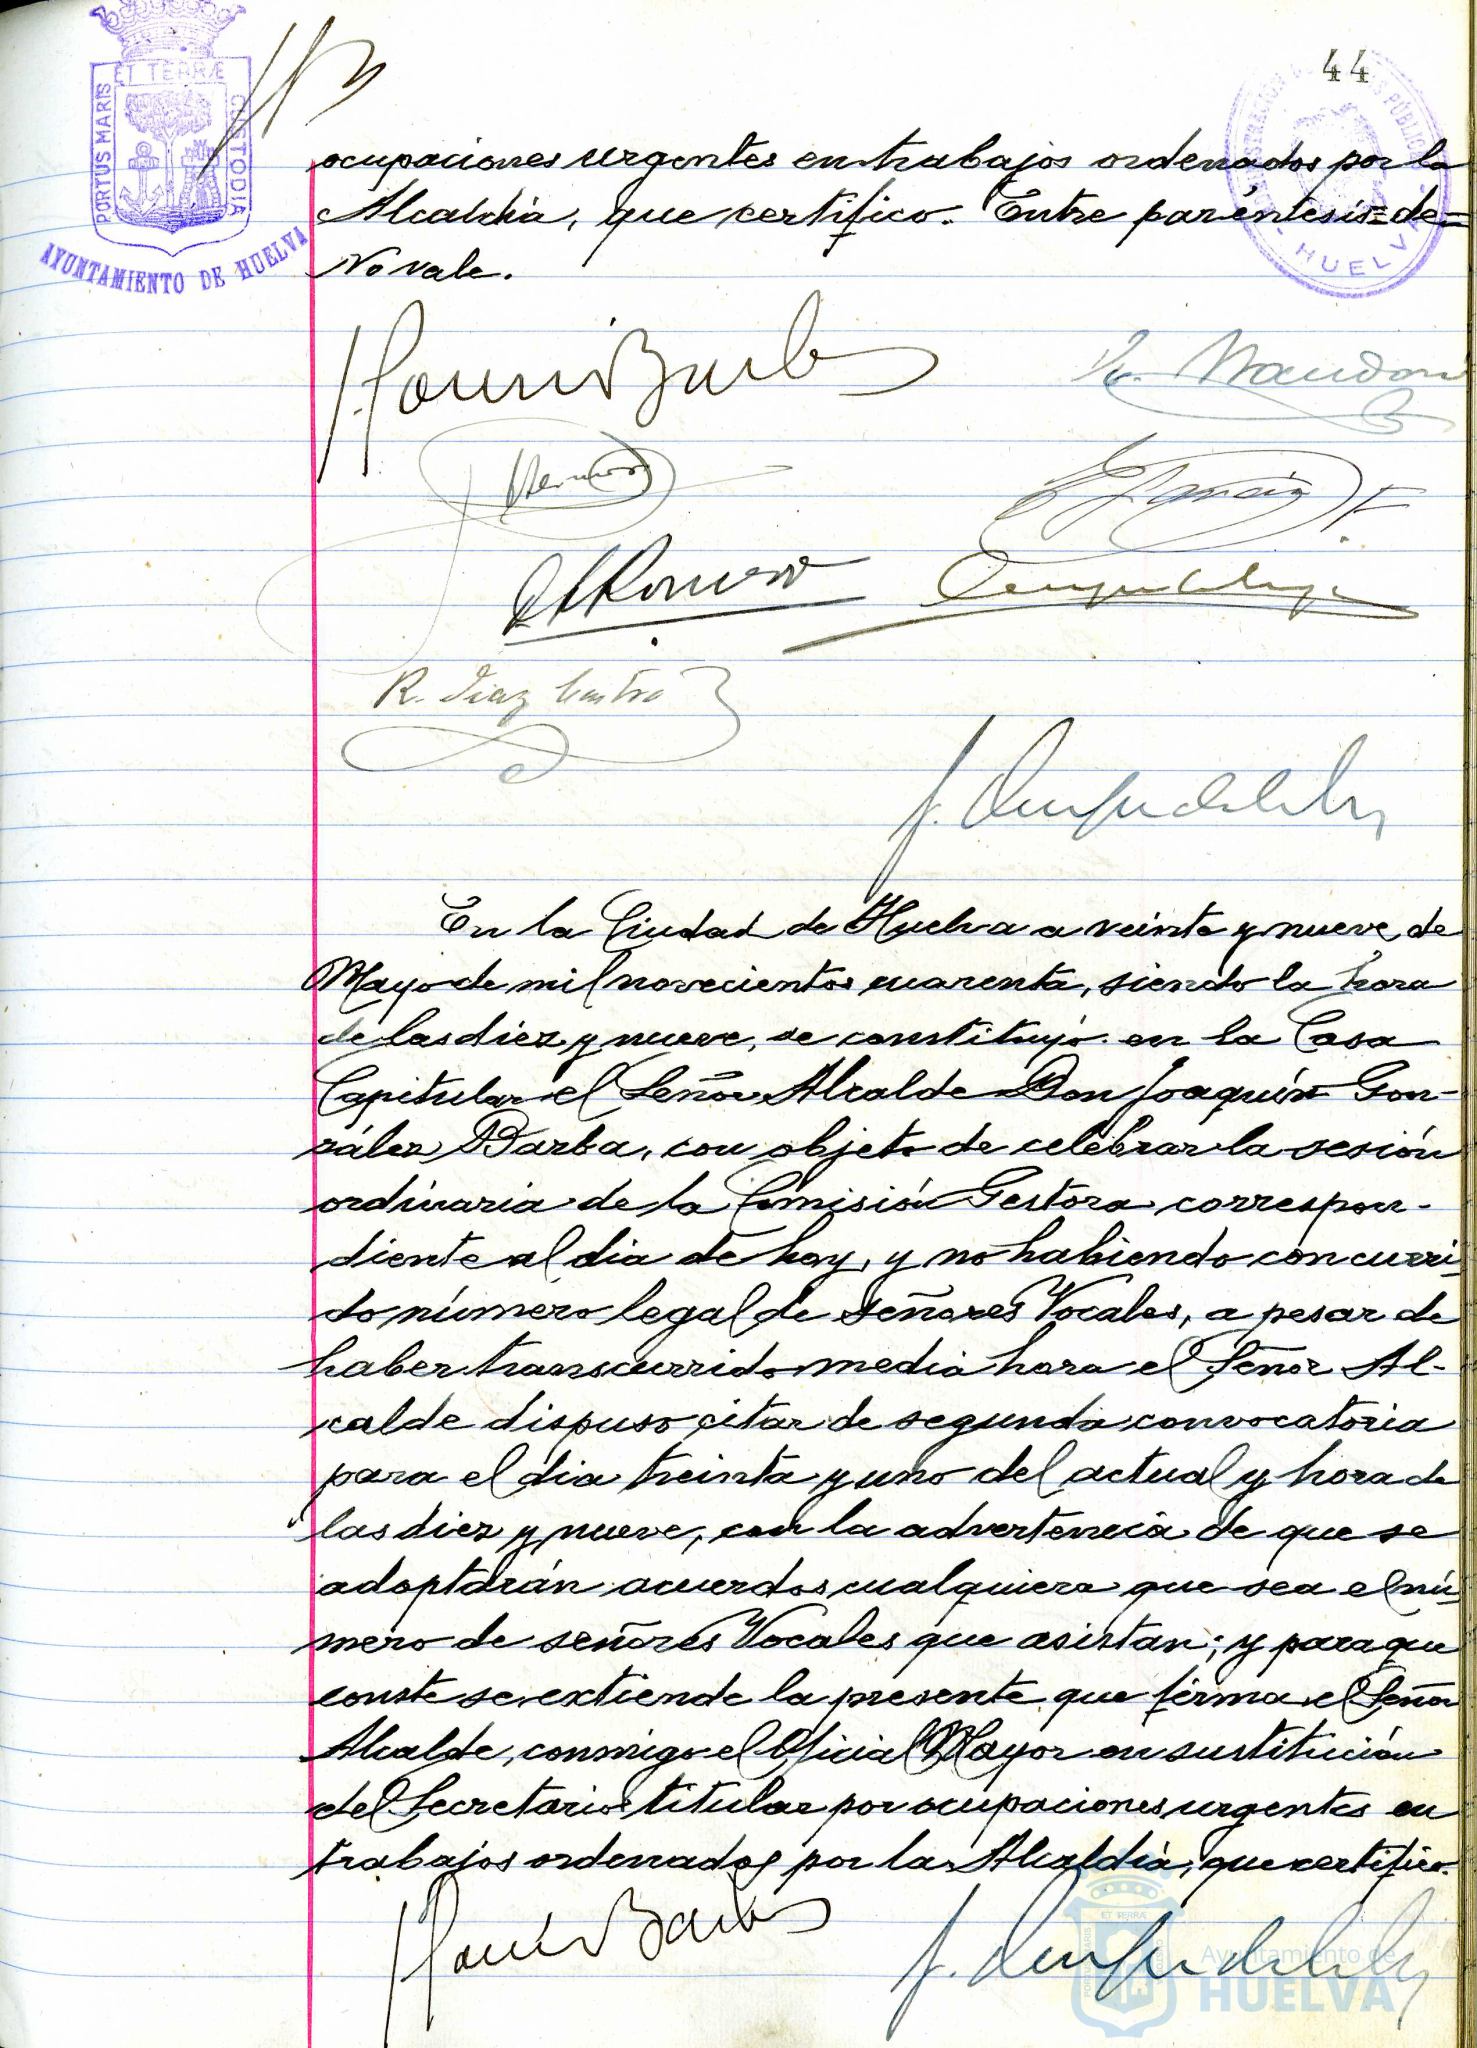 44
PORTUS MARIS ET TERRÆ CUSTODIA
AYUNTAMIENTO DE HUELVA
HUELVA
ocupaciones urgentes en trabajos ordenados por la
Alcaldia, que certifico. Entre parentesis=de=
No vale.
R. Diaz Castro
En la Ciudad de Huelva a veinte y nueve de
Mayo de mil novecientos cuarenta, siendo la hora
de las diez y nueve, se constituyó en la Casa
Capitular el Señor Alcalde Don Joaquín Gon-
zález Barba, con objeto de celebrar la sesión
ordinaria de la Comisión Gestora correspon-
diente al dia de hoy, y no habiendo concurri-
do número legal de señores Vocales, a pesar de
haber transcurrido media hora el Señor Al-
calde dispuso citar de segunda convocatoria
para el dia treinta y uno del actual y hora de
las diez y nueve, con la advertencia de que se
adoptarán acuerdos cualquiera que sea el nú-
mero de señores Vocales que asistan; y para que
conste se extiende la presente que firma el Señor
Alcalde, conmigo el Oficial Mayor en sustitución
del Secretario titular por ocupaciones urgentes en
trabajos ordenados por la Alcaldia, que certifico.
Ayuntamiento de
HUELVA